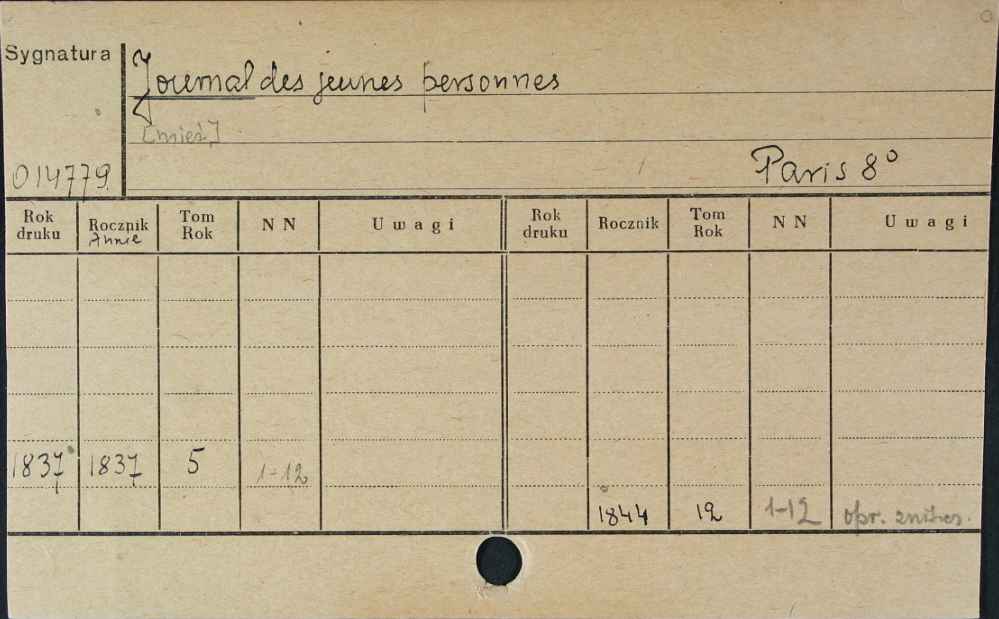 Sygnatura
Journal des jeunes personnes
[mies.]
014779
Paris 8°
Rok druku Rocznik Tom Rok N N Uwagi Rok druku Rocznik Tom Rok N N Uwagi
Année
1837 1837 5 1-12
1844 12 1-12 opr.